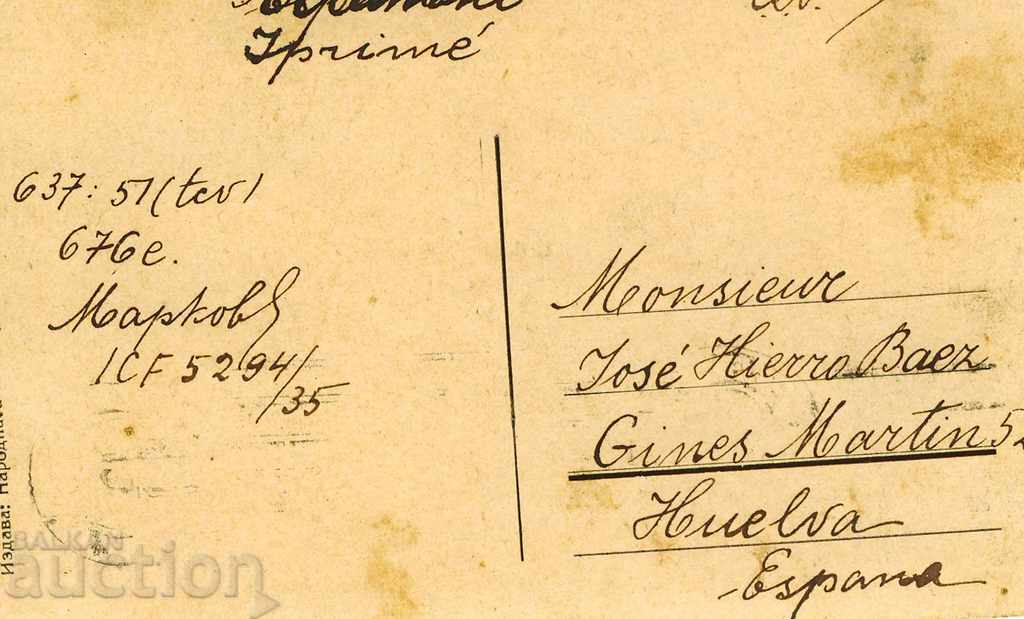 Iprimé
637: 51 (tcv)
676e.
Марковъ
ICF 5294/
/35
Monsieur
José Hierro Baez
Gines Martin 52
Huelva
Espana
Издава:
BALKAN
auction